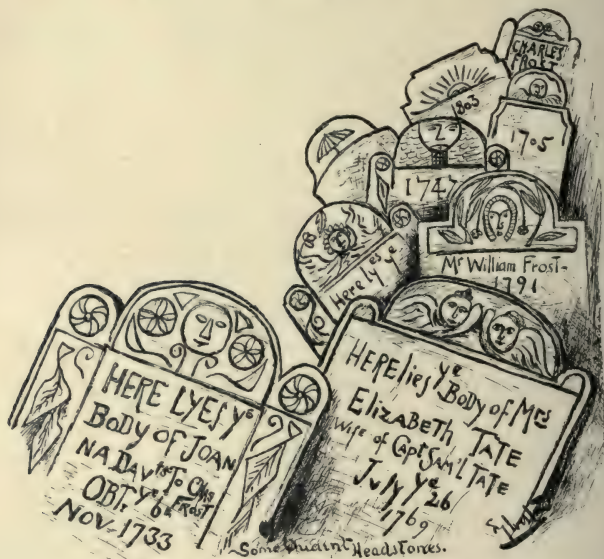 CHARLES
FROST
1803
1705
1747
Here lyes ye
Mr William Frost-
1791
HERE LYES ye
BODY OF JOAN
NA DAVtr TO Chs
FROST
OBT. ye 6
NOV. 1733
HERE lies ye Body of Mrs
Elizabeth TATE
wife of Capt Sam'l TATE
July ye 26
1769
Some Quaint Headstones.